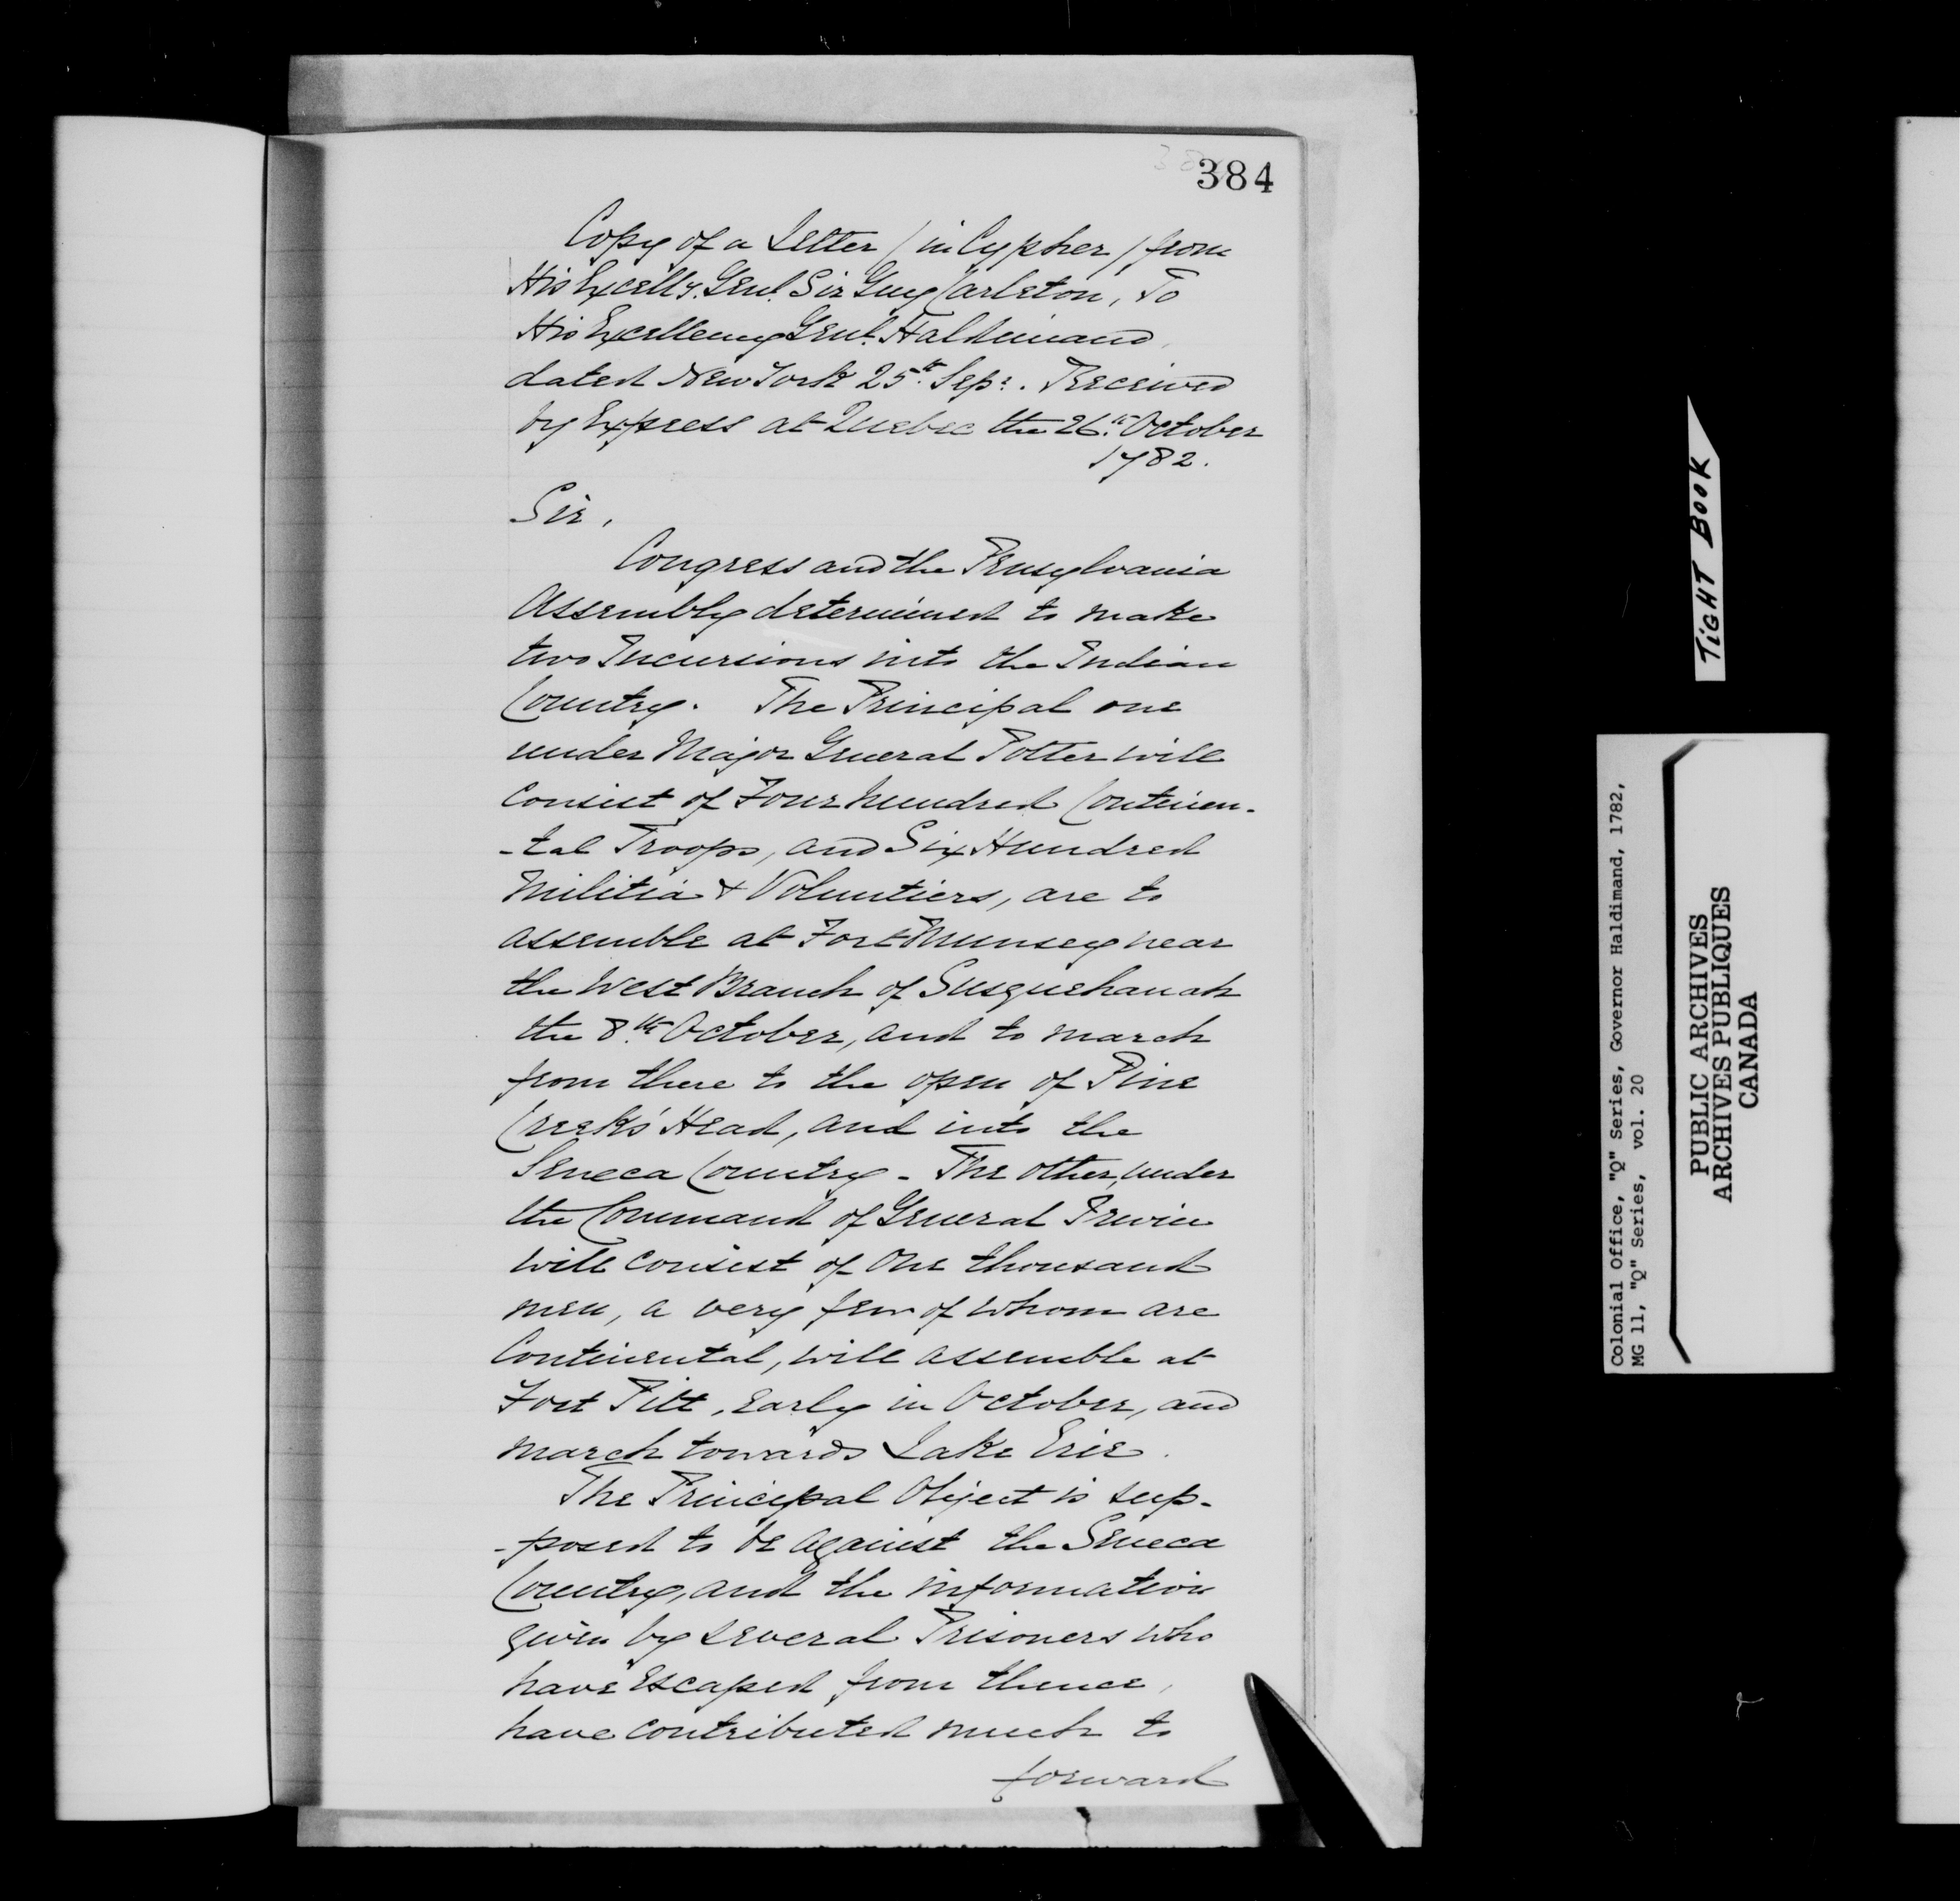 384
Copy of a Letter / in Cypher / from
His Excelly. Genl. Sir Guy Carleton, To
His Excellency Genl. Haldimand,
dated New York 25th. Sepr. Received
by Express at Quebec the 26th. October
1782.
Sir,
Congress and the Pensylvania
Assembly determined to make
two Incursions into the Indian
Country. The Principal one
under Major General Potter will
Consist of Four hundred Continen-
-tal Troops, and Six Hundred
Militia & Voluntiers, are to
assemble at Fort Munsey near
the West Branch of Susquehanah
the 8th. October, and to march
from there to the open of Pine
Creek's Head, and into the
Seneca Country - The other, under
the Command of General Irwin
will consist of One thousand
men, a very few of whom are
Continental, will assemble at
Fort Pitt, early in October, and
march towards Lake Erie.
The Principal Object is sup-
-posed to be against the Seneca
Country, and the information
given by several Prisoners who
have escaped from thence,
have contributed much to
forward
TIGHT BOOK
Colonial Office, "Q" Series, Governor Haldimand, 1782,
MG 11, "Q" Series, vol. 20
PUBLIC ARCHIVES
ARCHIVES PUBLIQUES
CANADA